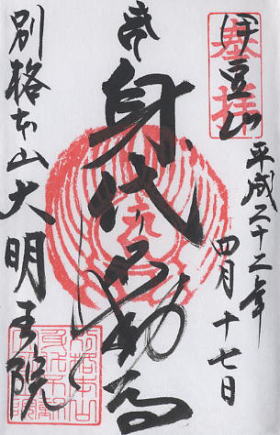 奉拝
伊豆山
平成二十二年
四月十七日
身代不動尊
別格本山大明王院